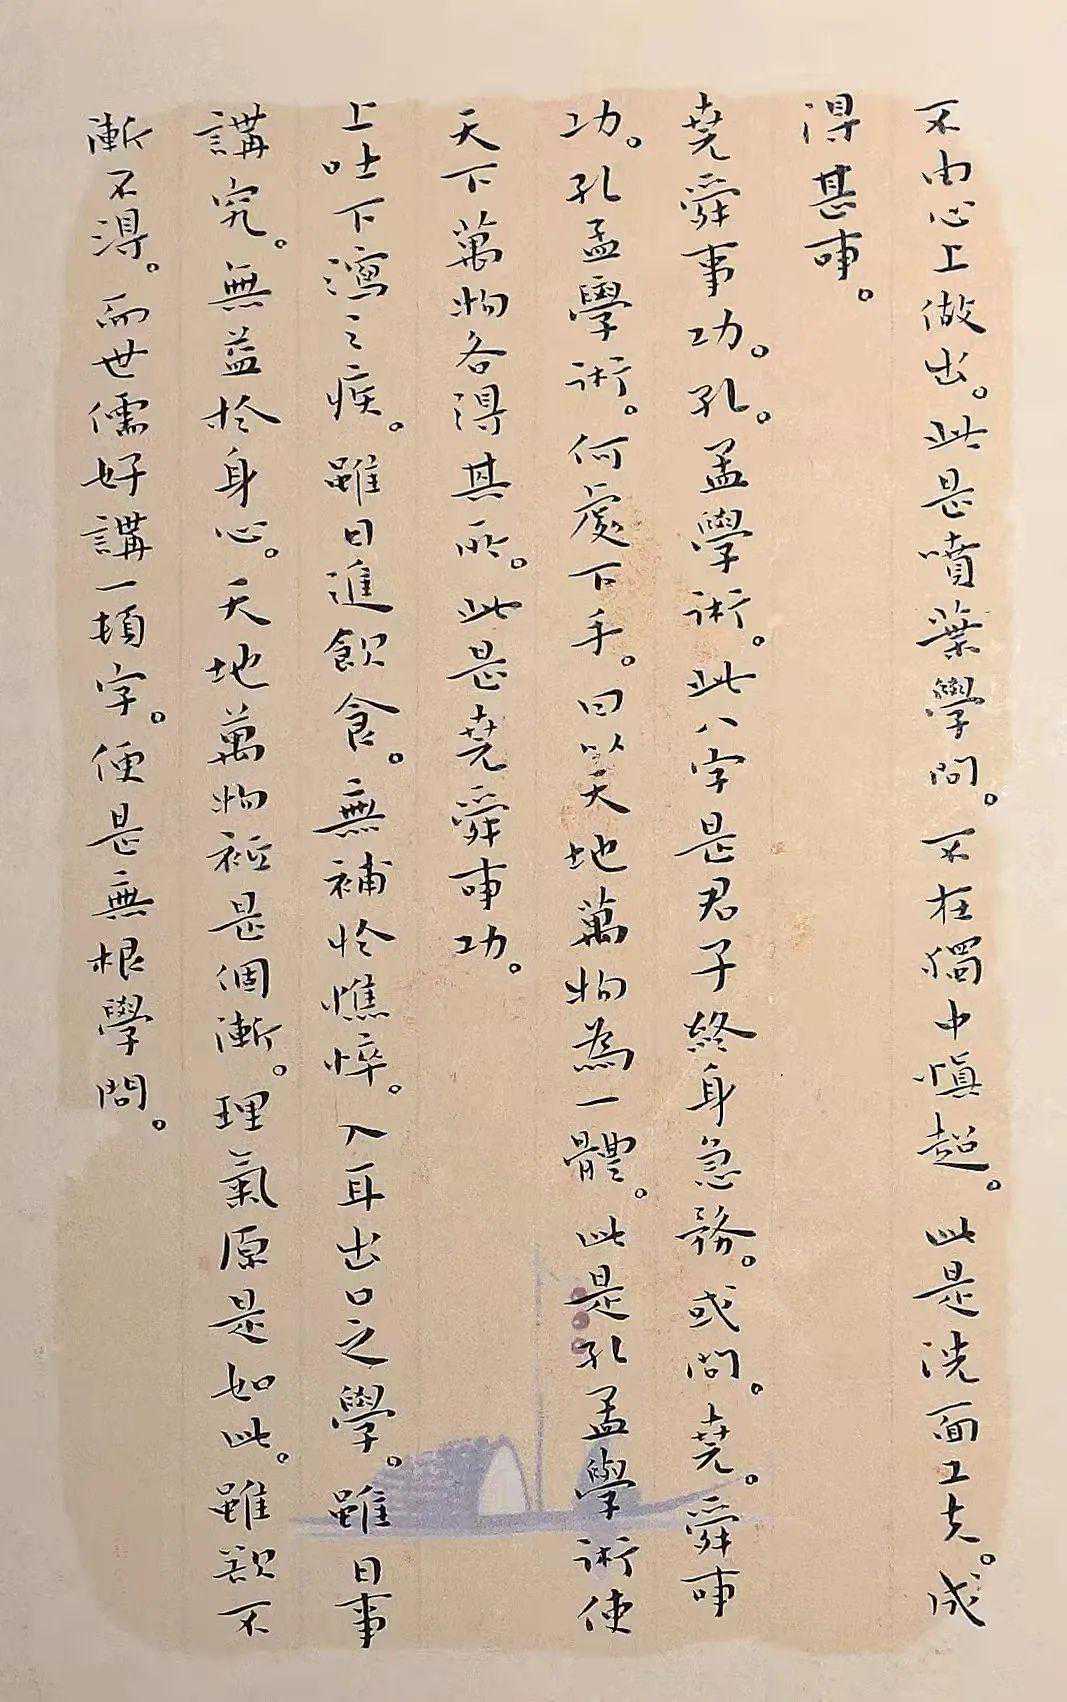 不由心上做出。此是噴葉學問。不在獨中慎超。此是洗面工夫。成
得甚事。
堯舜事功。孔。孟學術。此八字是君子終身急務。或問。堯。舜事
功。孔孟學術。何處下手。曰以天地萬物為一體。此是孔孟學術使
天下萬物各得其所。此是堯舜事功。
上吐下瀉之疾。雖日進飲食。無補於憔悴。入耳出口之學。雖日事
講究。無益於身心。天地萬物祗是個漸。理氣原是如此。雖欲不
漸不得。而世儒好講一頓字。便是無根學問。